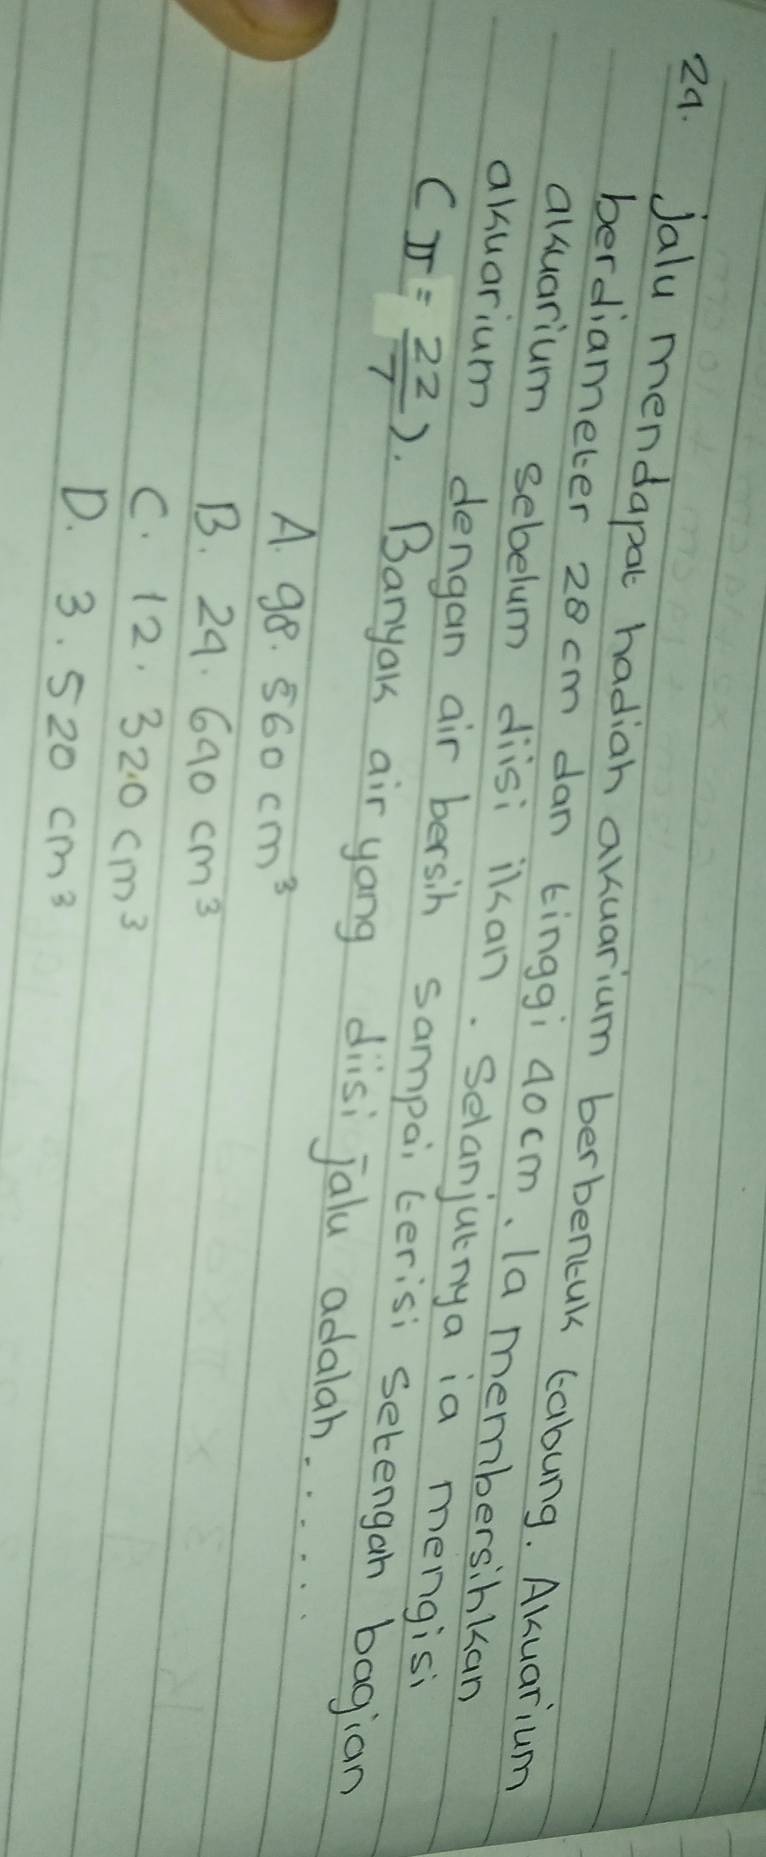 24. Jalu mendapat hadiah akuarium berbentuk tabung. Akuarium
berdiameter 28 cm dan tinggi 40 cm. Ia membersihkan
akuarium sebelum diisi ikan. Selanjutnya ia mengisi
akuarium dengan air bersih sampai terisi setengah bagian
(π = 22/7). Banyak air yang diisi Jalu adalah.......
A. 98.560 cm³
B. 24.640 cm³
C. 12.320 cm³
D. 3.520 cm³